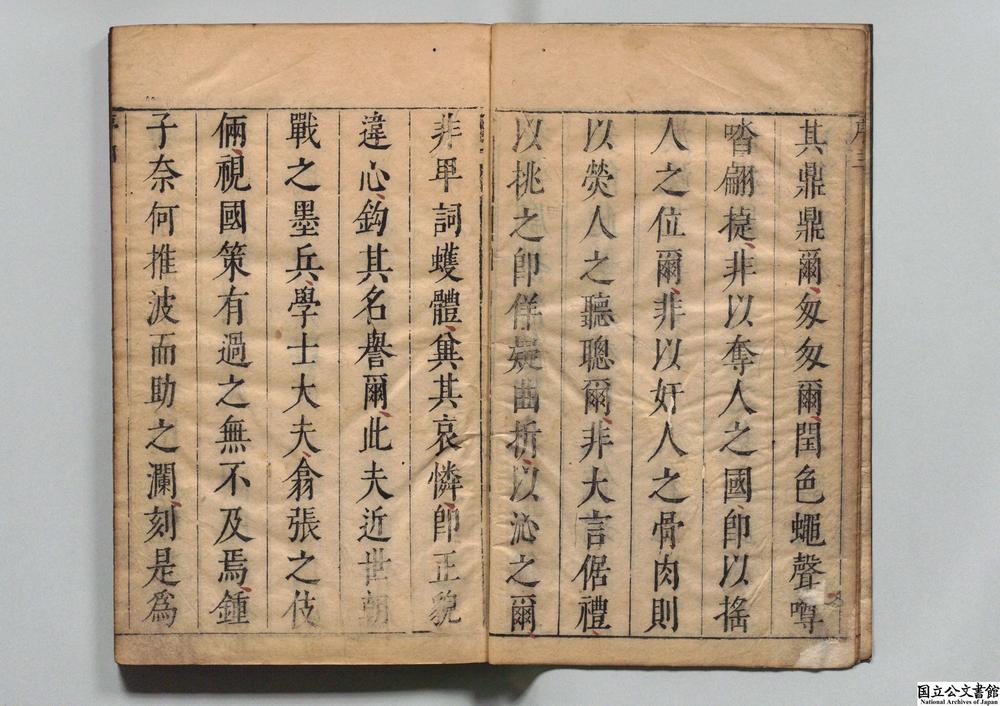 其鼎鼎爾匆匆爾閏色蠅聲噂
喈翩㨗非以奪人之國卽以搖
人之位爾非以奸人之骨肉則
以熒人之聽聰爾非大言倨禮
以挑之卽佯疑曲折以沁之爾
非单詞蠖體冀其哀憐卽正貌
違心鈎其名譽爾此夫近世朝
戰之墨兵學士大夫翕張之伎
倆視國策有過之無不及焉鍾
子奈何推波而助之瀾刻是爲
国立公文書館
National Archives of Japan